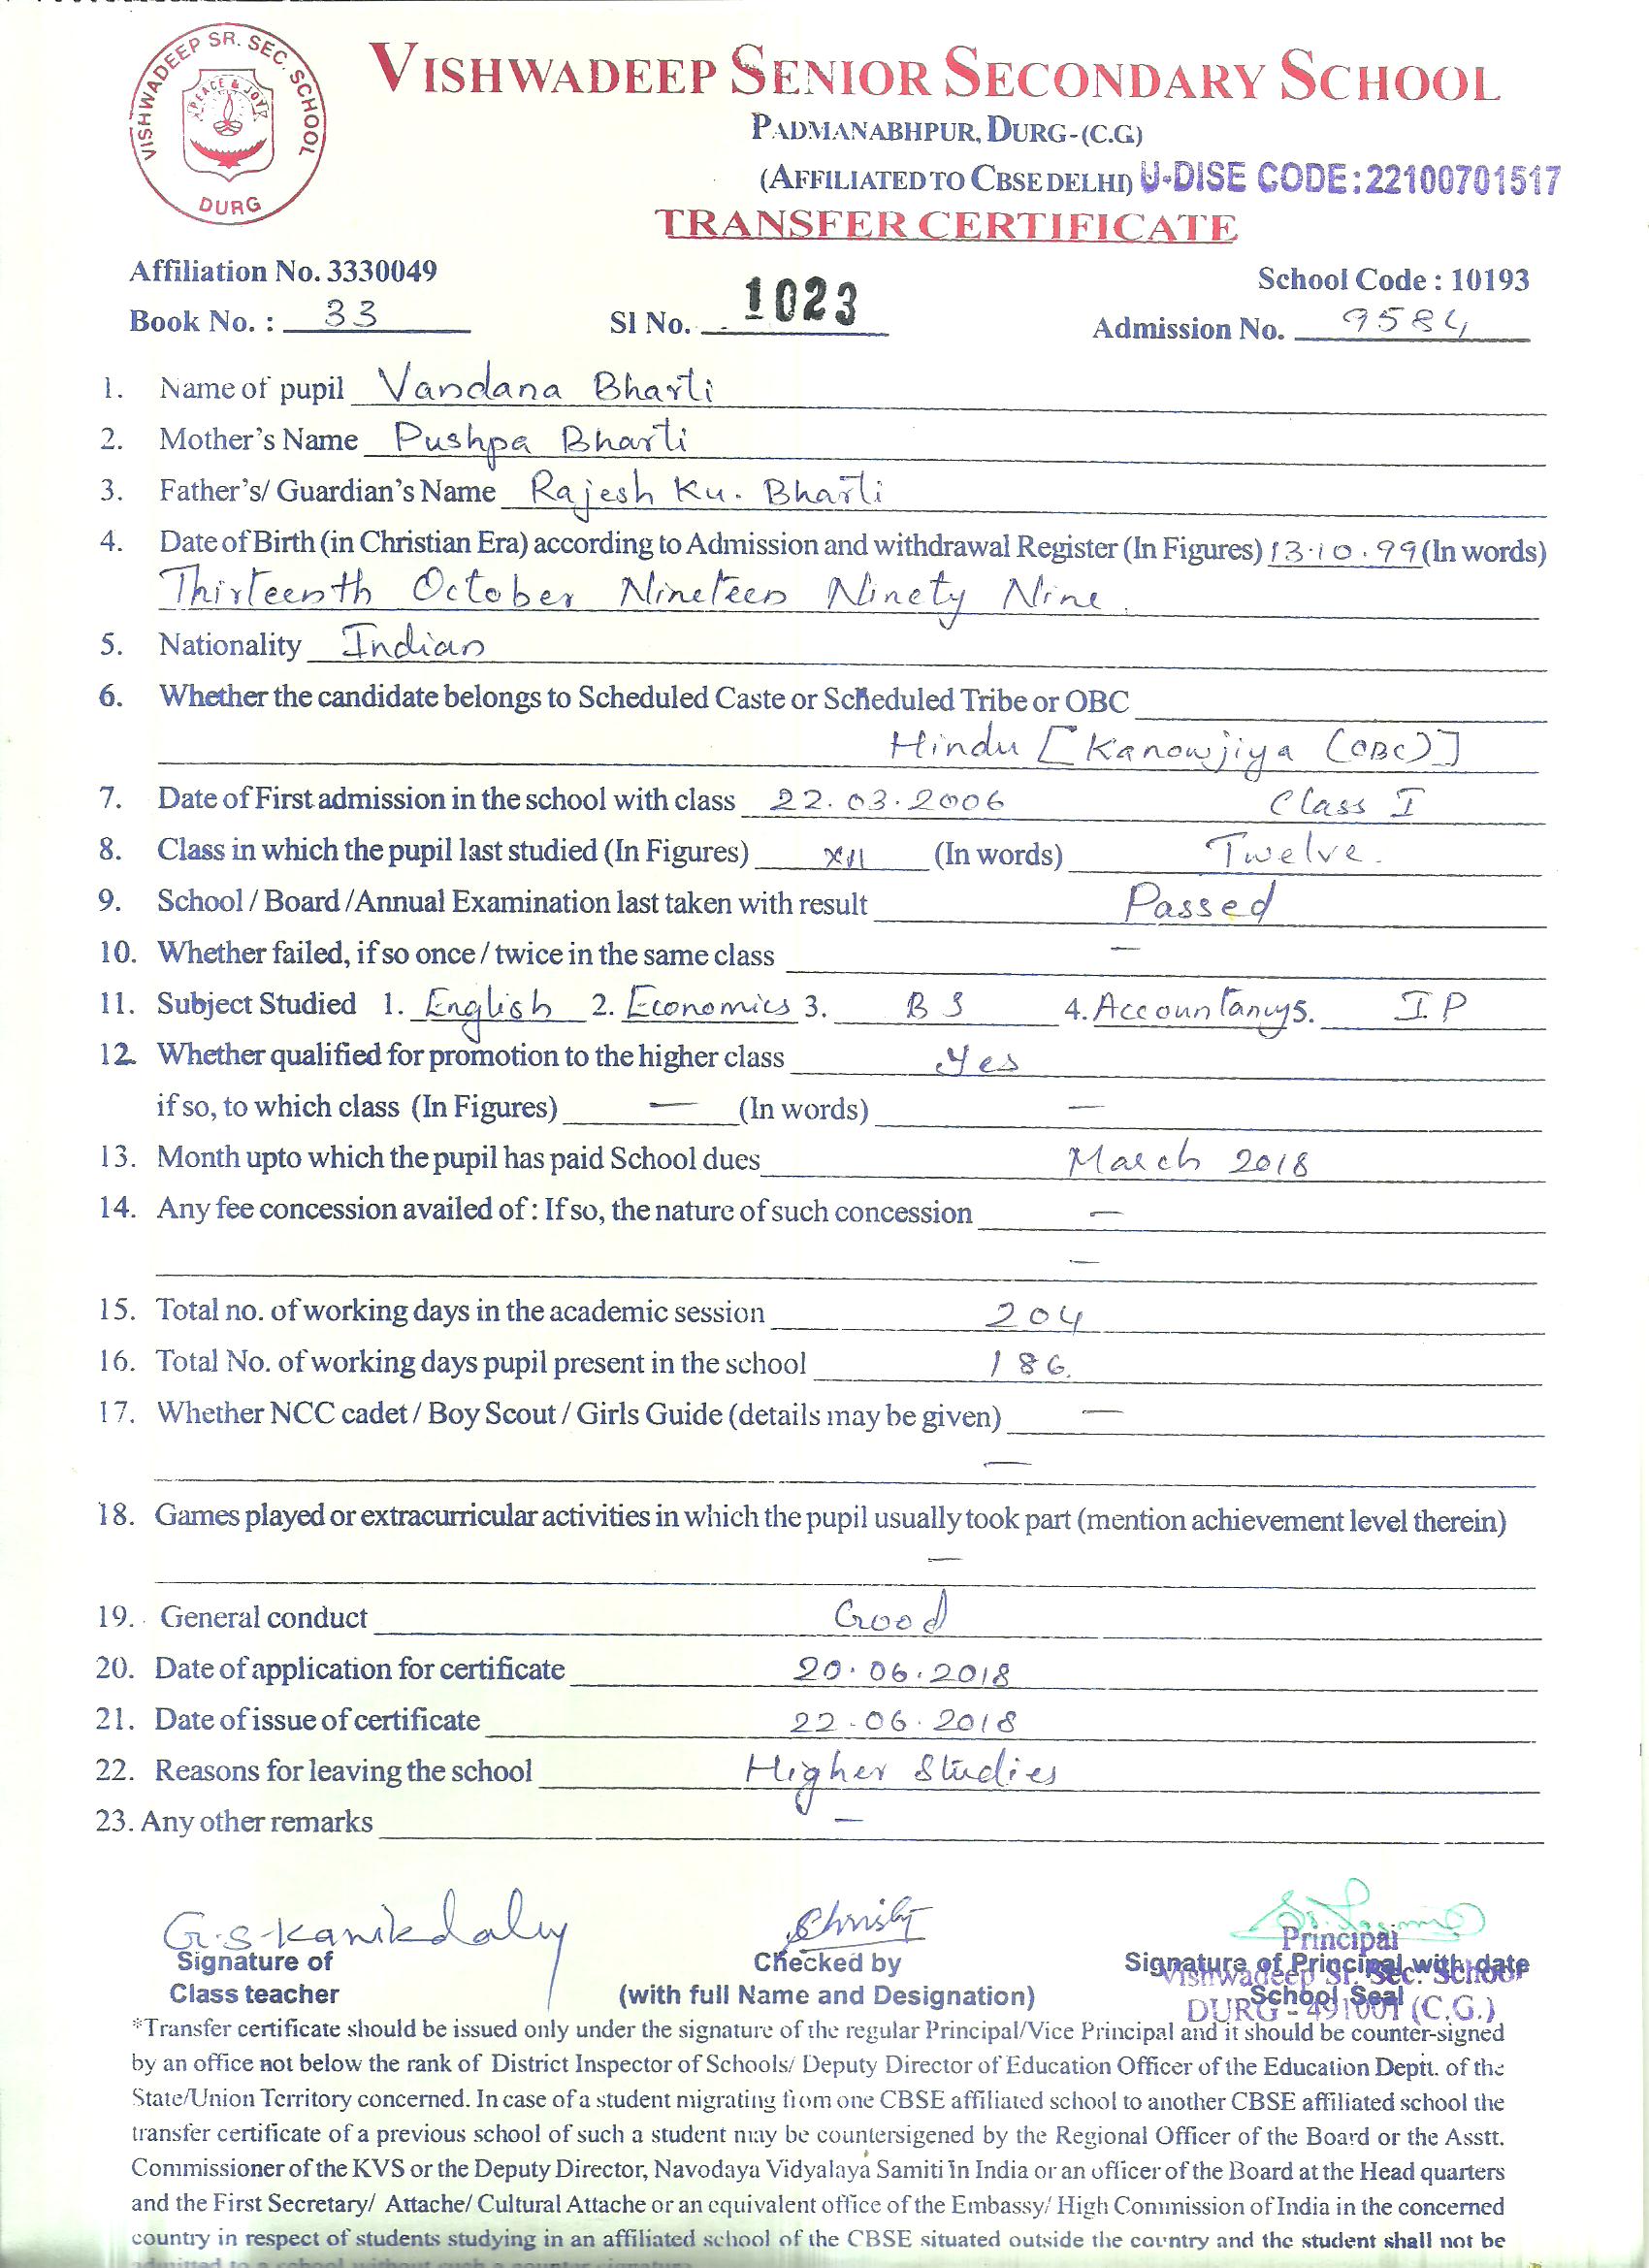 VISHWADEEP SR. SEC. SCHOOL
PEACE & JOY
DURG
VISHWADEEP SENIOR SECONDARY SCHOOL
PADMANABHPUR, DURG-(C.G)
(AFFILIATED TO CBSE DELHI) U-DISE CODE:22100701517
TRANSFER CERTIFICATE
Affiliation No. 3330049 School Code : 10193
Book No. : 33 Sl No. 1023 Admission No. 9584
1. Name of pupil Vandana Bharti
2. Mother's Name Pushpa Bharti
3. Father's/ Guardian's Name Rajesh Ku. Bharti
4. Date of Birth (in Christian Era) according to Admission and withdrawal Register (In Figures) 13.10.99 (In words)
Thirteenth October Nineteen Ninety Nine
5. Nationality Indian
6. Whether the candidate belongs to Scheduled Caste or Scheduled Tribe or OBC
Hindu [Kanowjiya (OBC)]
7. Date of First admission in the school with class 22.03.2006 Class I
8. Class in which the pupil last studied (In Figures) XII (In words) Twelve.
9. School / Board /Annual Examination last taken with result Passed
10. Whether failed, if so once / twice in the same class —
11. Subject Studied 1. English 2. Economics 3. BS 4. Accountancy 5. I.P
12. Whether qualified for promotion to the higher class Yes
if so, to which class (In Figures) — (In words) —
13. Month upto which the pupil has paid School dues March 2018
14. Any fee concession availed of : If so, the nature of such concession —
—
15. Total no. of working days in the academic session 204
16. Total No. of working days pupil present in the school 186.
17. Whether NCC cadet / Boy Scout / Girls Guide (details may be given) —
—
18. Games played or extracurricular activities in which the pupil usually took part (mention achievement level therein)
—
19. General conduct Good
20. Date of application for certificate 20.06.2018
21. Date of issue of certificate 22.06.2018
22. Reasons for leaving the school Higher Studies
23. Any other remarks —
Principal
Signature of Checked by Signature of Principal with date
Vishwadeep Sr. Sec. School
Class teacher (with full Name and Designation) School Seal
DURG - 491001 (C.G.)
*Transfer certificate should be issued only under the signature of the regular Principal/Vice Principal and it should be counter-signed
by an office not below the rank of District Inspector of Schools/ Deputy Director of Education Officer of the Education Deptt. of the
State/Union Territory concerned. In case of a student migrating from one CBSE affiliated school to another CBSE affiliated school the
transfer certificate of a previous school of such a student may be countersigened by the Regional Officer of the Board or the Asstt.
Commissioner of the KVS or the Deputy Director, Navodaya Vidyalaya Samiti in India or an officer of the Board at the Head quarters
and the First Secretary/ Attache/ Cultural Attache or an equivalent office of the Embassy/ High Commission of India in the concerned
country in respect of students studying in an affiliated school of the CBSE situated outside the country and the student shall not be
admitted to a school without such a counter signature